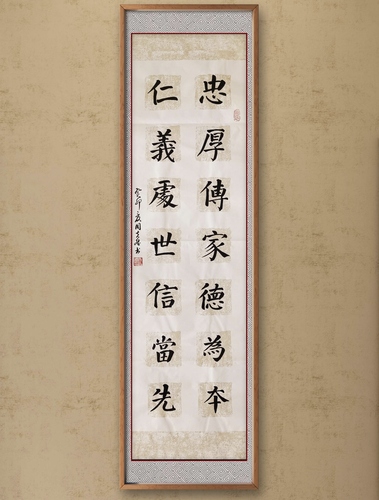 忠厚傳家德為本
仁義處世信當先
癸卯